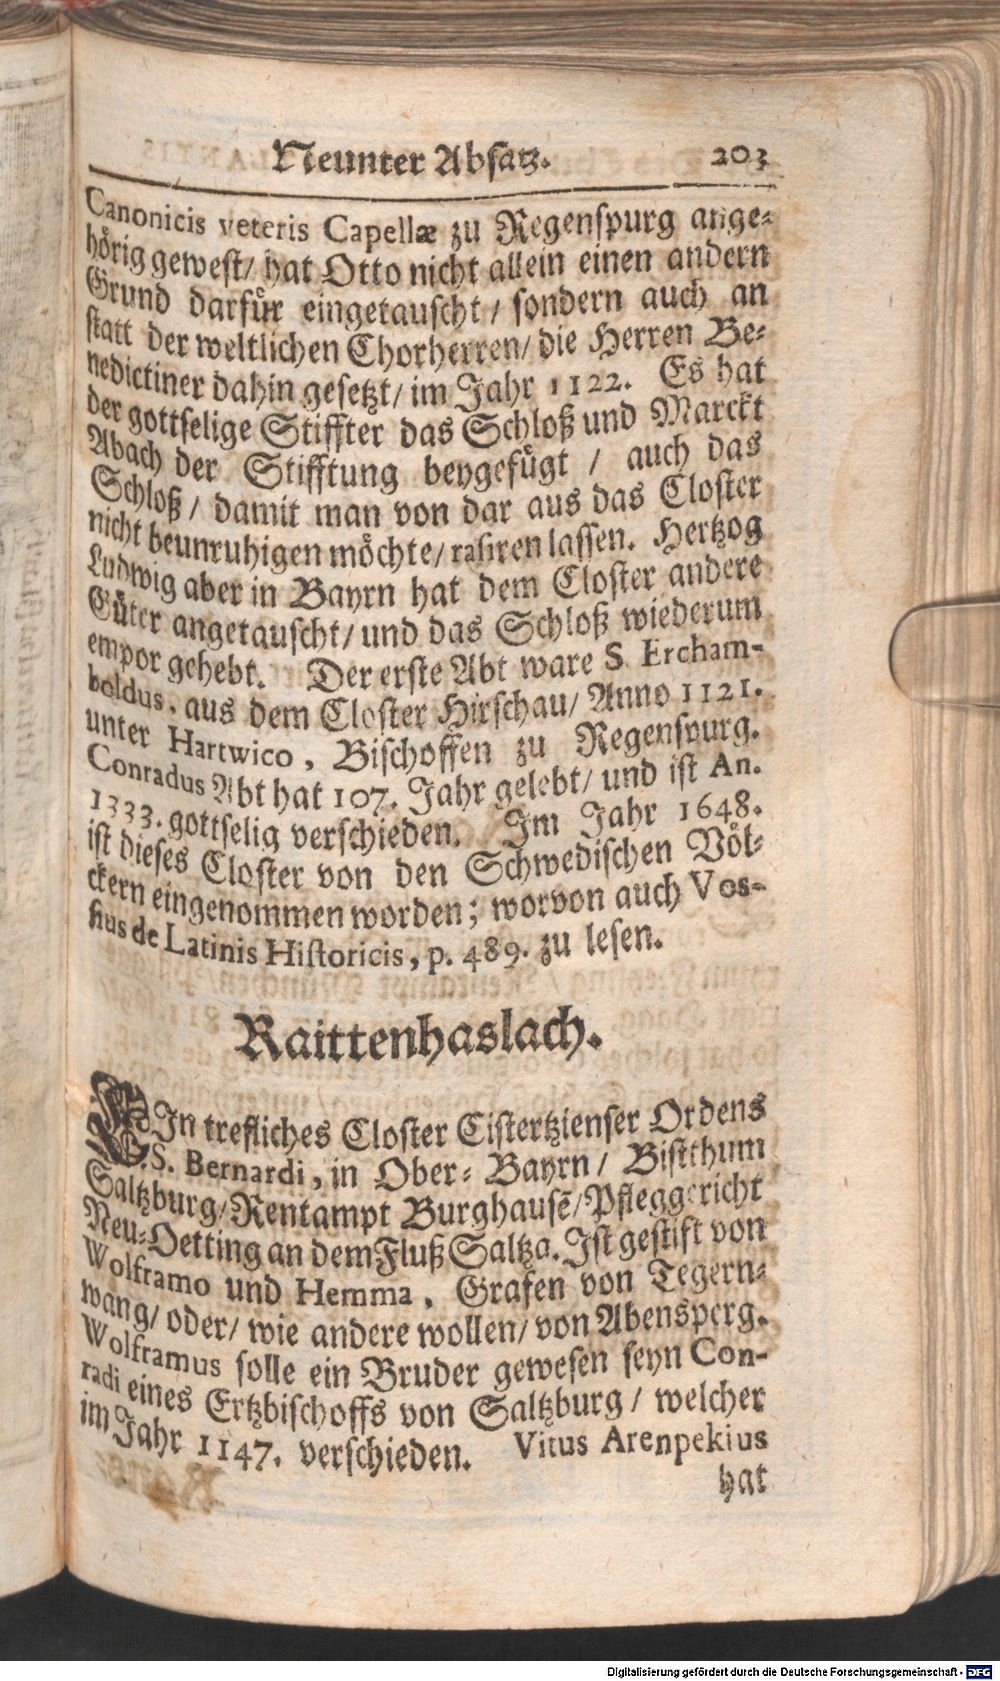 Neunter Absatz. 203
Canonicis veteris Capellæ zu Regenspurg ange-
hörig gewest/ hat Otto nicht allein einen andern
Grund darfür eingetauscht / sondern auch an
statt der weltlichen Chorherren/ die Herren Be-
nedictiner dahin gesetzt/ im Jahr 1122. Es hat
der gottselige Stiffter das Schloß und Marckt
Abach der Stifftung beygefügt / auch das
Schloß / damit man von dar aus das Closter
nicht beunruhigen möchte/ rasiren lassen. Hertzog
Ludwig aber in Bayrn hat dem Closter andere
Güter angetauscht/ und das Schloß wiederum
empor gehebt. Der erste Abt ware S. Ercham-
boldus, aus dem Closter Hirschau/ Anno 1121.
unter Hartwico, Bischoffen zu Regenspurg.
Conradus Abt hat 107. Jahr gelebt/ und ist An.
1333. gottselig verschieden. Im Jahr 1648.
ist dieses Closter von den Schwedischen Völ-
ckern eingenommen worden; worvon auch Vos-
sius de Latinis Historicis, p. 489. zu lesen.
Raittenhaslach.
EIn trefliches Closter Cistertzienser Ordens
S. Bernardi, in Ober-Bayrn/ Bistthum
Saltzburg/Rentampt Burghausē/Pfleggericht
Neu-Oetting an dem Fluß Saltza. Ist gestift von
Wolframo und Hemma, Grafen von Tegern-
wang/ oder/ wie andere wollen/ von Abensperg.
Wolframus solle ein Bruder gewesen seyn Con-
radi eines Ertzbischoffs von Saltzburg / welcher
im Jahr 1147. verschieden. Vitus Arenpekius
hat
Digitalisierung gefördert durch die Deutsche Forschungsgemeinschaft - DFG